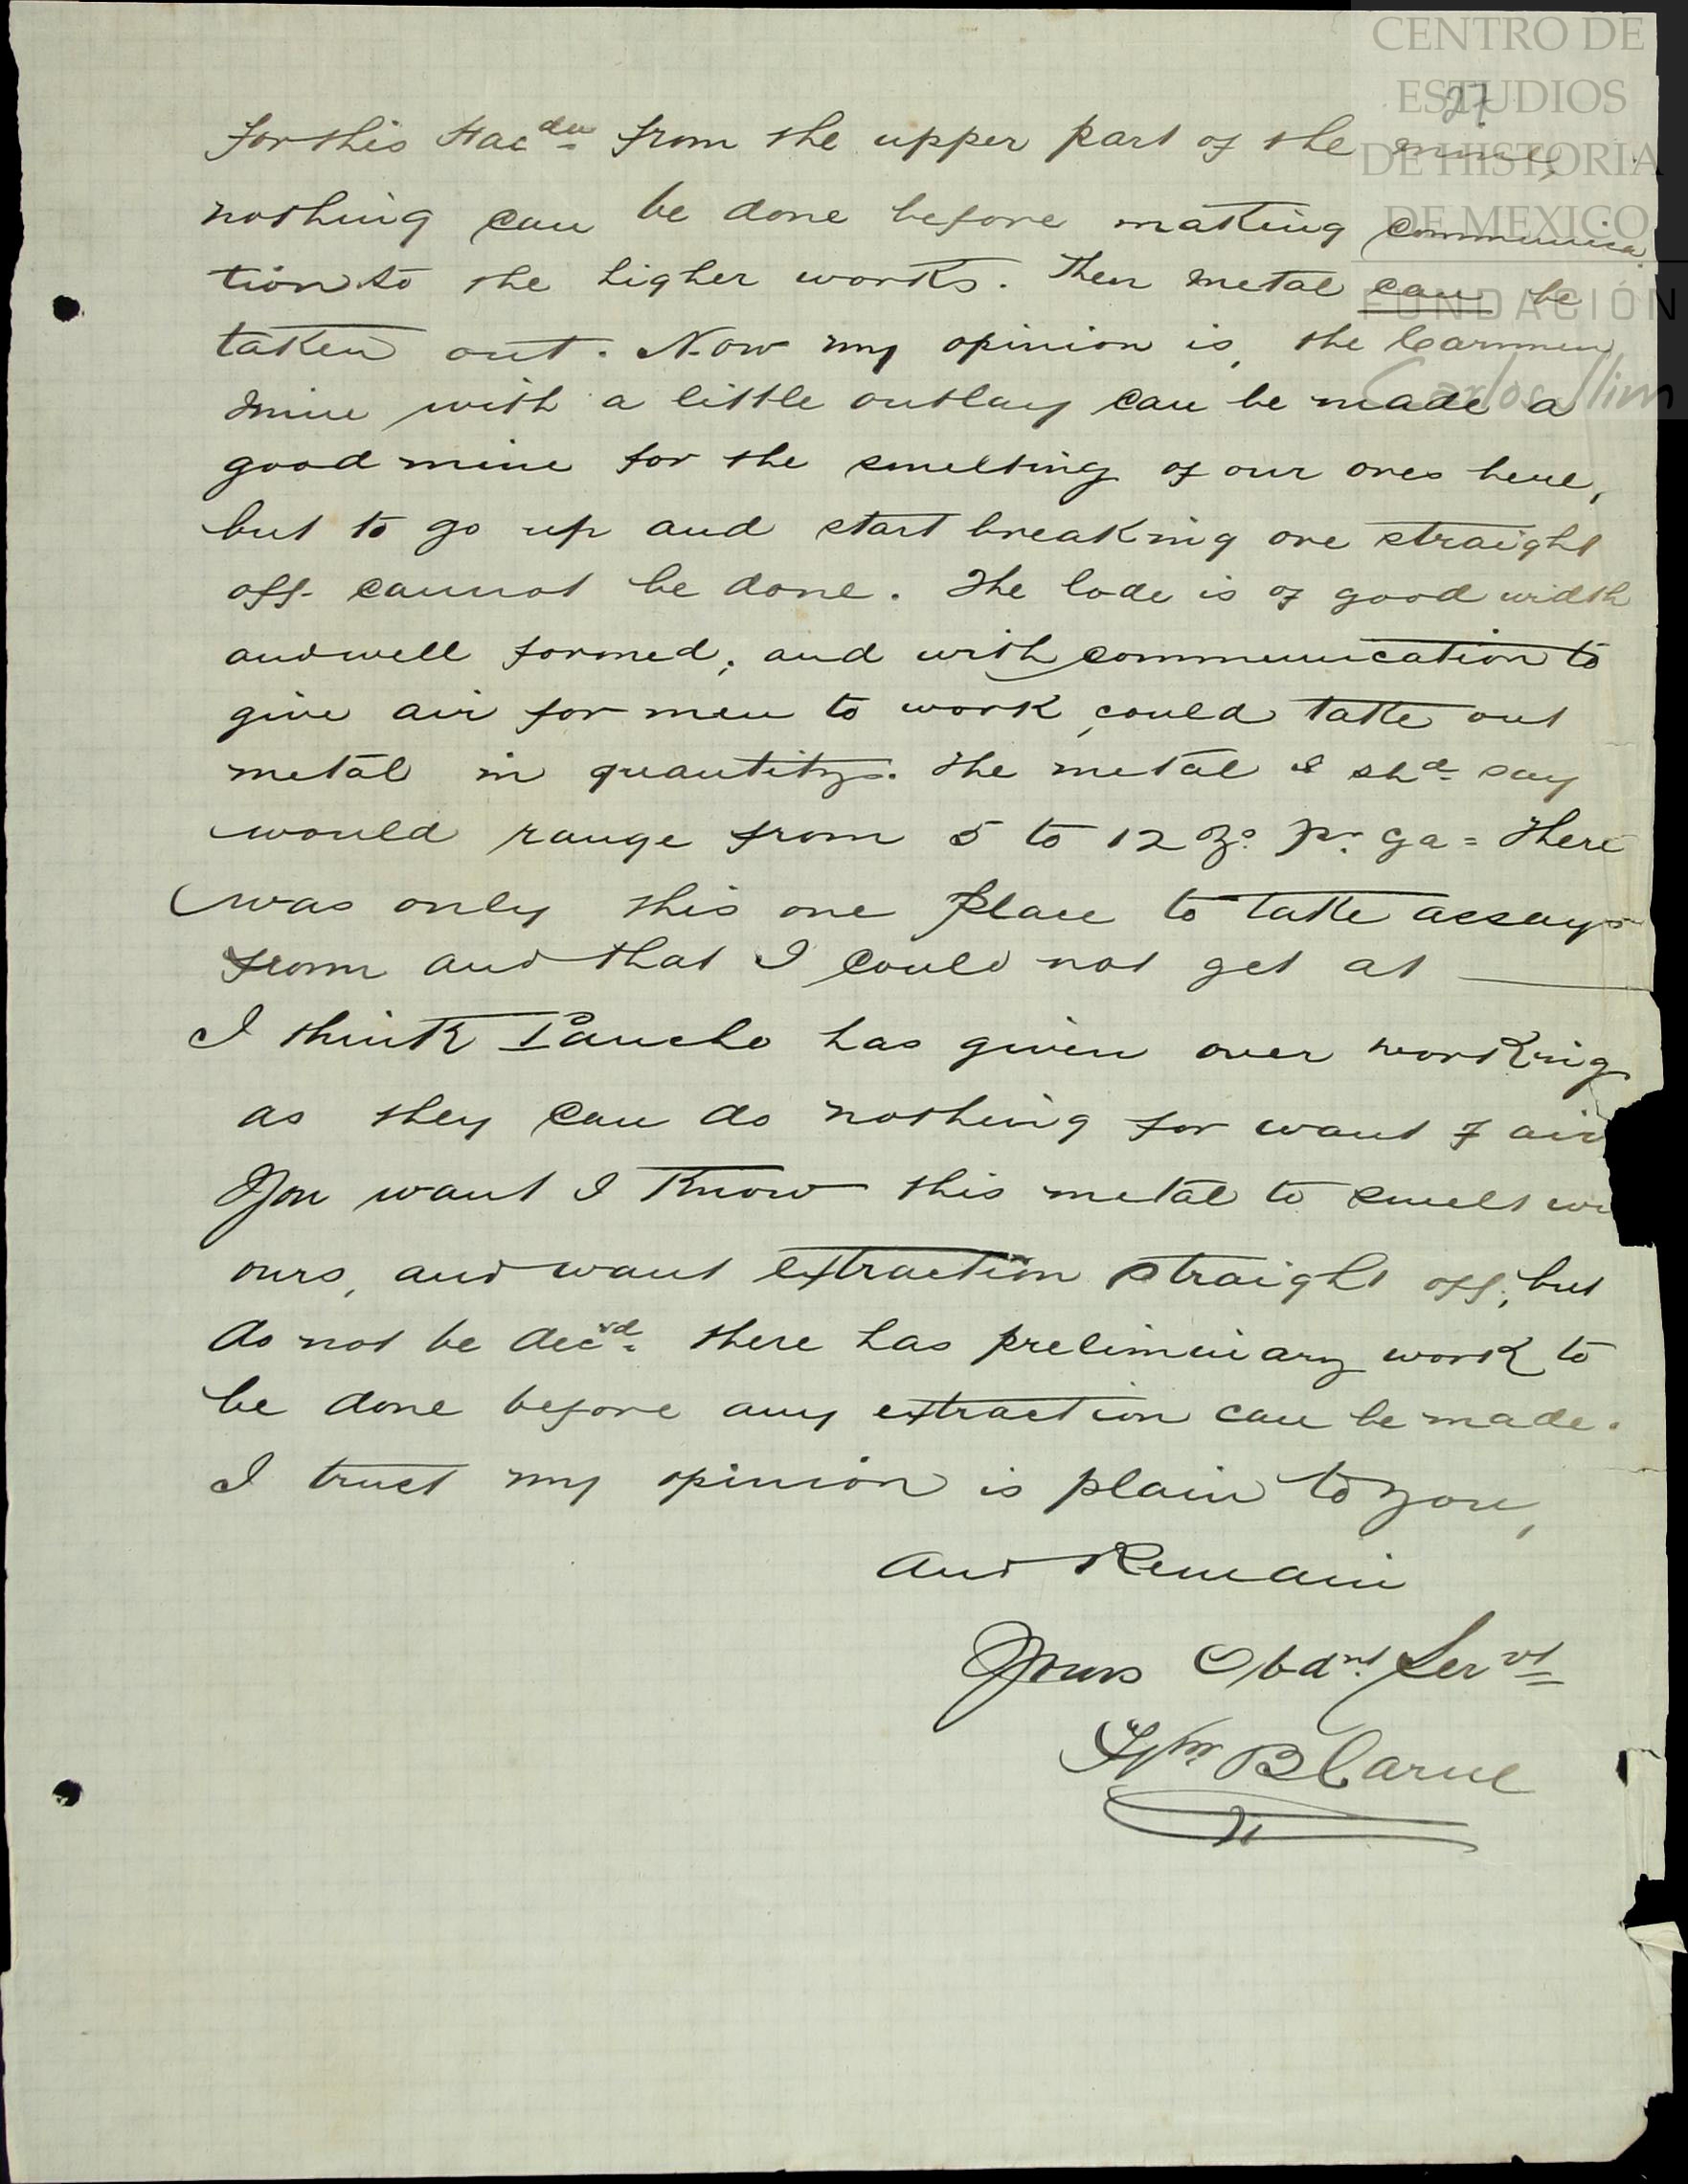 CENTRO DE
ESTUDIOS
DE HISTORIA
DE MEXICO
FUNDACIÓN
Carlos Slim
27
for this Hac^da from the upper part of the mine,
nothing can be done before making communica
tion to the higher works. Then metal can be
taken out. Now my opinion is, the Carmen
mine with a little outlay can be made a
good mine for the smelting of our ores here,
but to go up and start breaking ore straight
off cannot be done. The lode is of good width
and well formed, and with communication to
give air for men to work, could take out
metal in quantitys. The metal I sh^d say
would range from 5 to 12 ozs pr. Ca = There
was only this one place to take assays
from and that I could not get at —
I think Pancho has given over working
as they can do nothing for want of air
You want I know this metal to smelt wi
ours, and want extraction straight off, but
do not be dec^vd there has preliminary work to
be done before any extraction can be made.
I trust my opinion is plain to you,
and Remain
Yours Obd^nt Serv^t
Wm B Carne